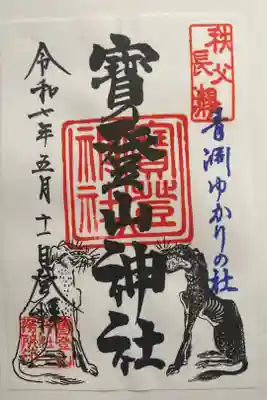 秩父
長瀞
青淵ゆかりの社
寳登山神社
寳登山神社
令和七年五月十一日登拝